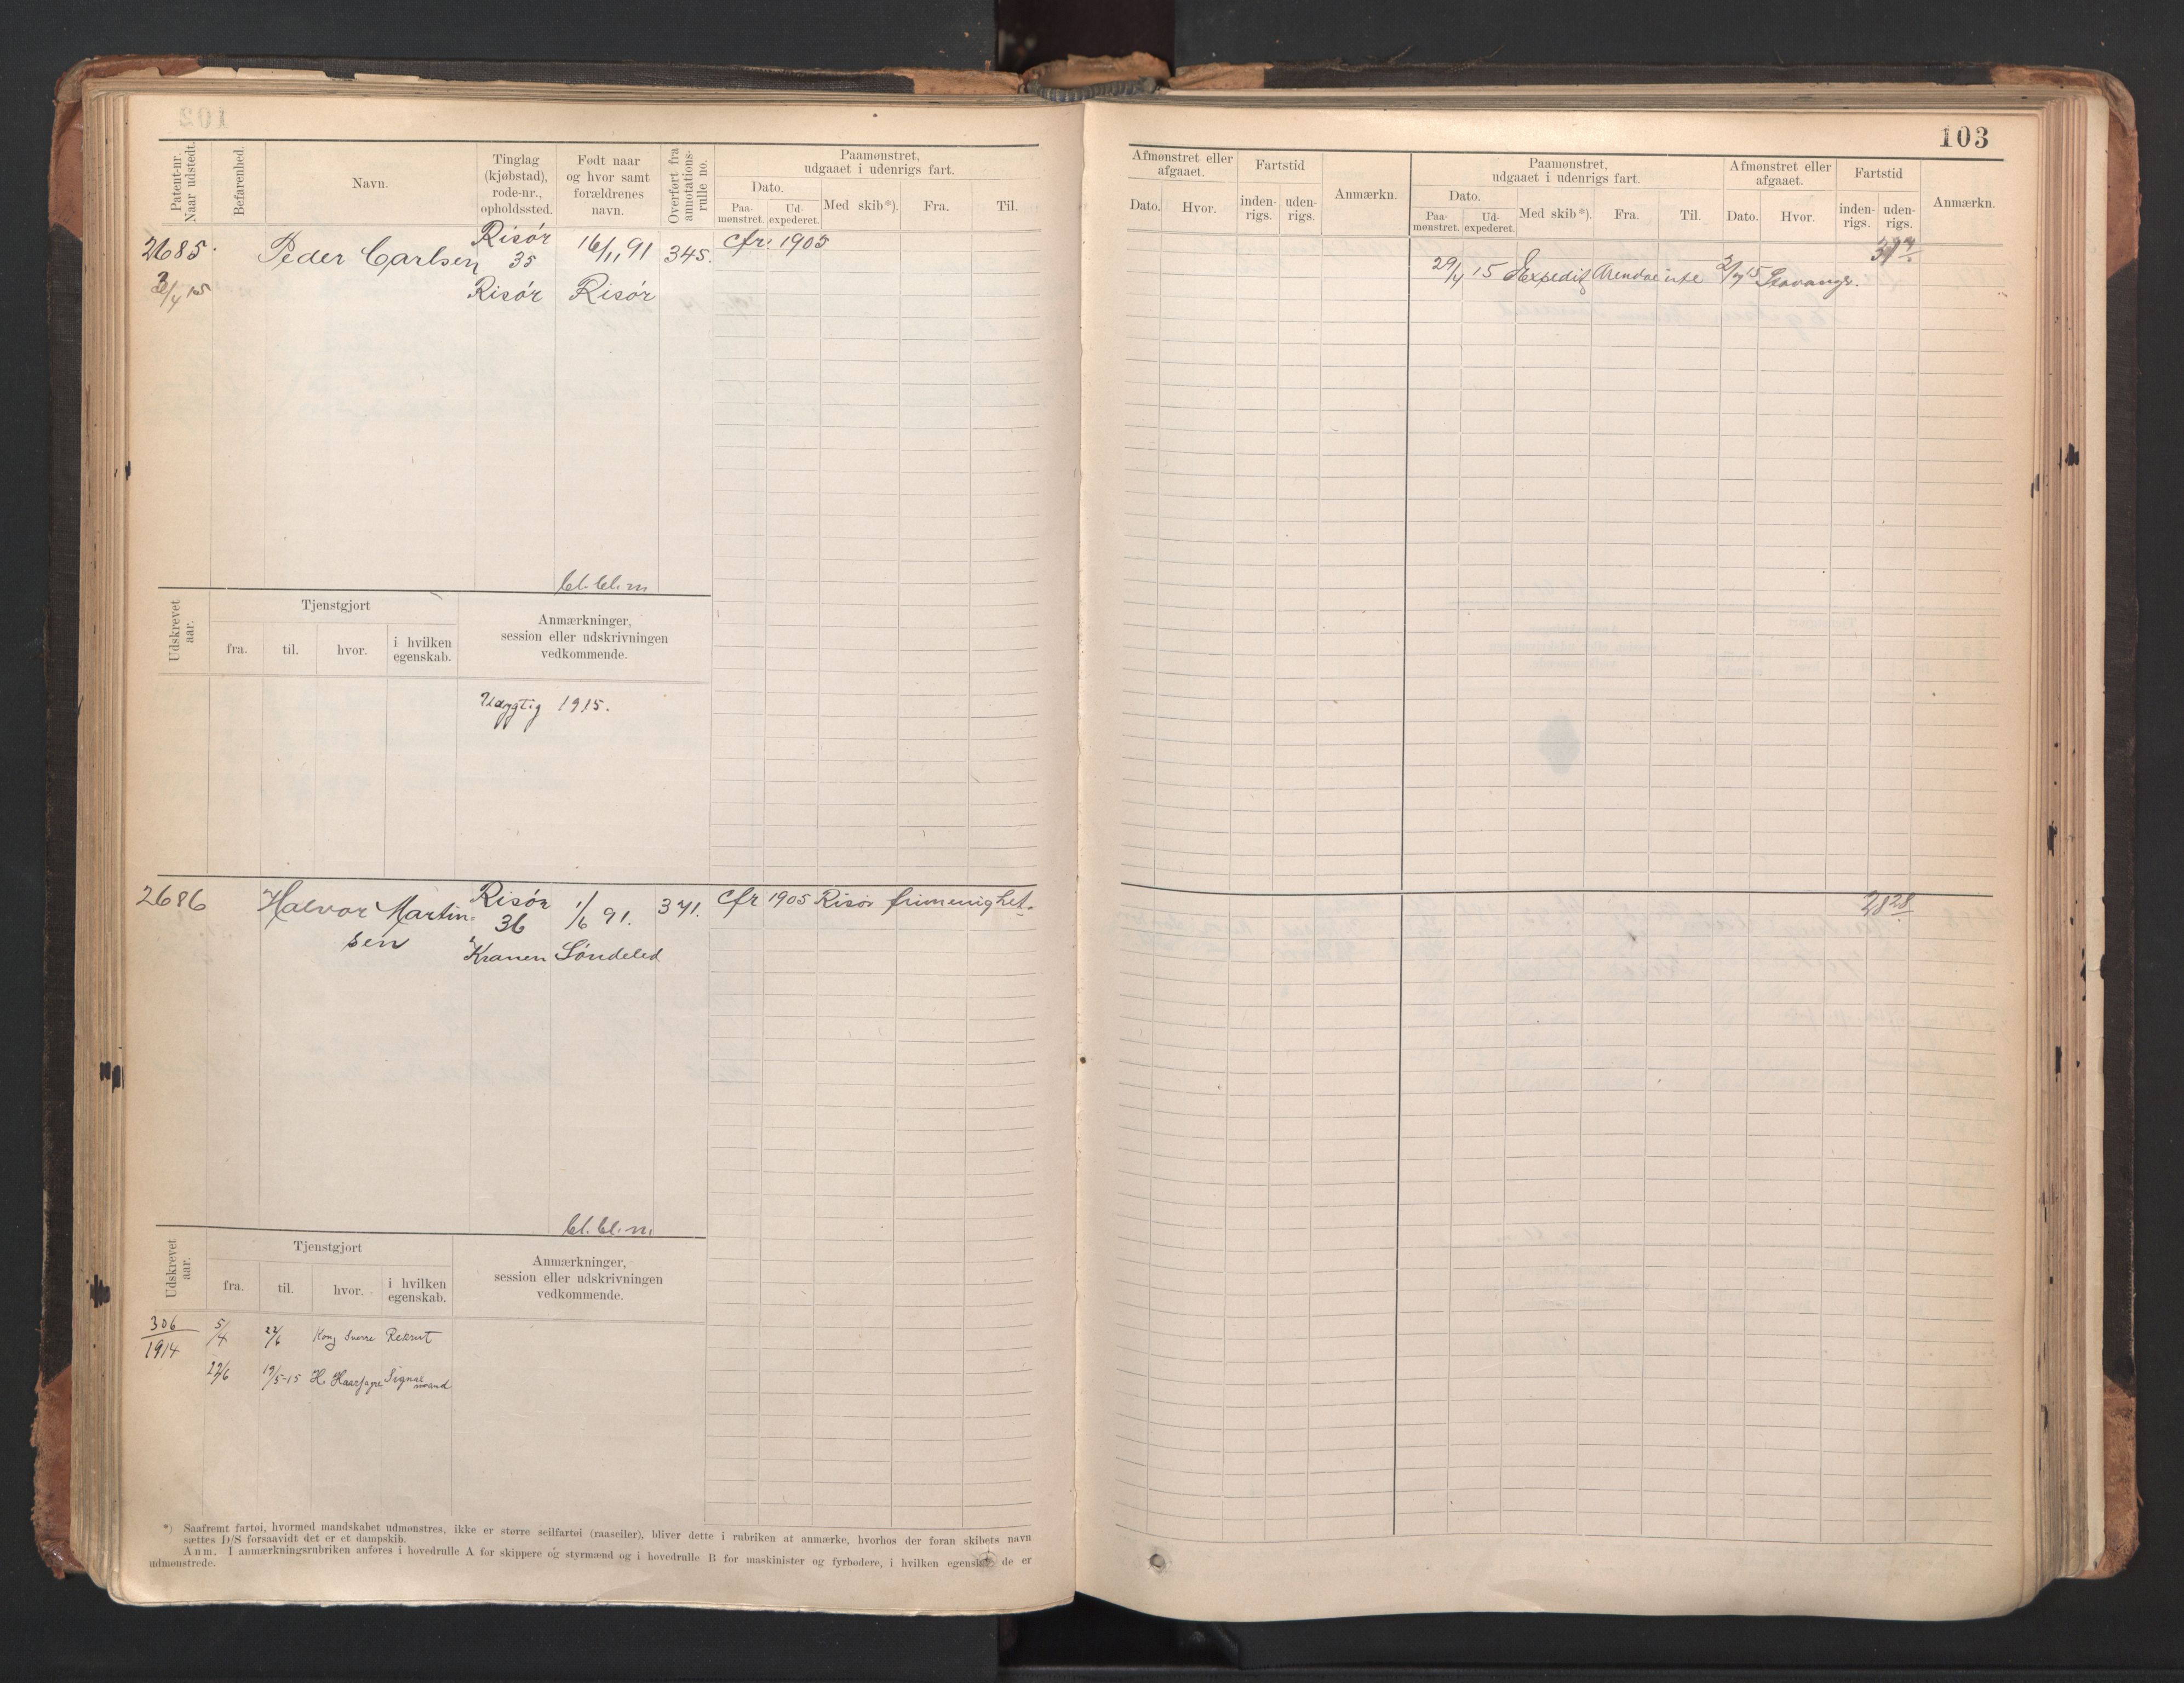 103
Patent-nr. Naar udstedt.
Befarenhed.
Navn.
Tinglag (kjøbstad), rode-nr., opholdssted.
Født naar og hvor samt forældrenes navn.
Overført fra annotations-rulle no.
Paamønstret, udgaaet i udenrigs fart.
Dato.
Paa-mønstret.
Ud-expederet.
Med skib*).
Fra.
Til.
Afmønstret eller afgaaet.
Dato.
Hvor.
Fartstid
inden-rigs.
uden-rigs.
Anmærkn.
Paamønstret, udgaaet i udenrigs fart.
Dato.
Paa-mønstret.
Ud-expederet.
Med skib*).
Fra.
Til.
Afmønstret eller afgaaet.
Dato.
Hvor.
Fartstid
inden-rigs.
uden-rigs.
Anmærkn.
2685. Peder Carlsen Risör 16/11 91 345. cfr. 1905
35
Risör Risör
29/4 15 Expedit Arendal ute 2/7 15 Stavanger.
bl. bl. m
Udskrevet aar.
Tjenstgjort
fra.
til.
hvor.
i hvilken egenskab.
Anmærkninger, session eller udskrivningen vedkommende.
Udygtig 1915.
2686 Halvor Martin= Risör 1/6 91. 371. cfr 1905 Risör
sen 36
Kranen Söndeled
2828
bl. bl. m.
Udskrevet aar.
Tjenstgjort
fra.
til.
hvor.
i hvilken egenskab.
Anmærkninger, session eller udskrivningen vedkommende.
306/1914 5/4 22/6 Kong Sverre Rekrut
22/6 19/5-15 H. Haarfagre Signalmand
*) Saafremt fartøi, hvormed mandskabet udmønstres, ikke er større seilfartøi (raaseiler), bliver dette i rubriken at anmærke, hvorhos der foran skibets navn
sættes D/S forsaavidt det er et dampskib.
Anm. I anmærkningsrubriken anføres i hovedrulle A for skippere og styrmænd og i hovedrulle B for maskinister og fyrbødere, i hvilken egenskab de er
udmønstrede.